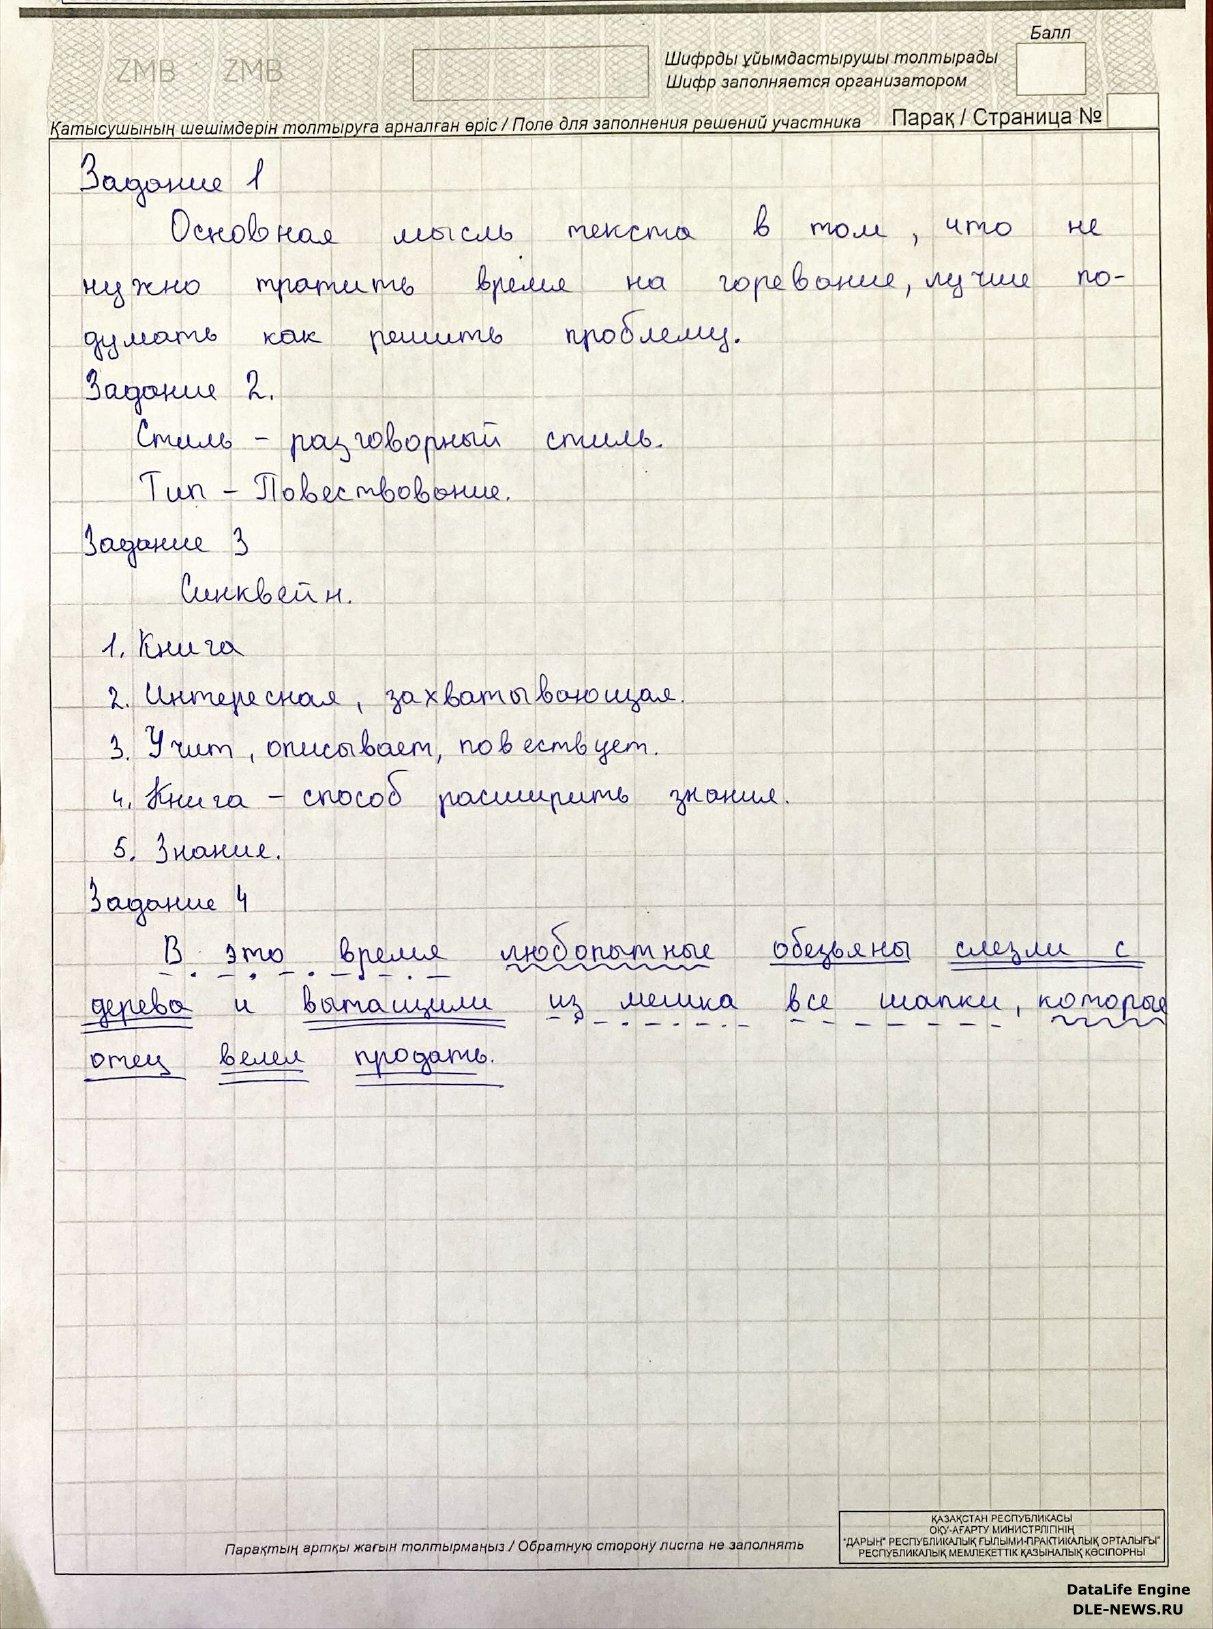 Балл
ZMB ZMB
Шифрды ұйымдастырушы толтырады
Шифр заполняется организатором
Қатысушының шешімдерін толтыруға арналған өріс / Поле для заполнения решений участника
Парақ / Страница №
Задание 1
Основная мысль текста в том, что не
нужно тратить время на горевание, лучше по-
думать как решить проблему.
Задание 2.
Стиль - разговорный стиль.
Тип - Повествование.
Задание 3
Синквейн.
1. Книга
2. Интересная, захватывающая.
3. Учит, описывает, повествует.
4. Книга - способ расширить знания.
5. Знание.
Задание 4
В это время любопытные обезьяны слезли с
дерева и вытащили из мешка все шапки, которые
отец велел продать.
Парақтың артқы жағын толтырмаңыз / Обратную сторону листа не заполнять
ҚАЗАҚСТАН РЕСПУБЛИКАСЫ
ОҚУ-АҒАРТУ МИНИСТРЛІГІНІҢ
"ДАРЫН" РЕСПУБЛИКАЛЫҚ ҒЫЛЫМИ-ПРАКТИКАЛЫҚ ОРТАЛЫҒЫ"
РЕСПУБЛИКАЛЫҚ МЕМЛЕКЕТТІК ҚАЗЫНАЛЫҚ КӘСІПОРНЫ
DataLife Engine
DLE-NEWS.RU